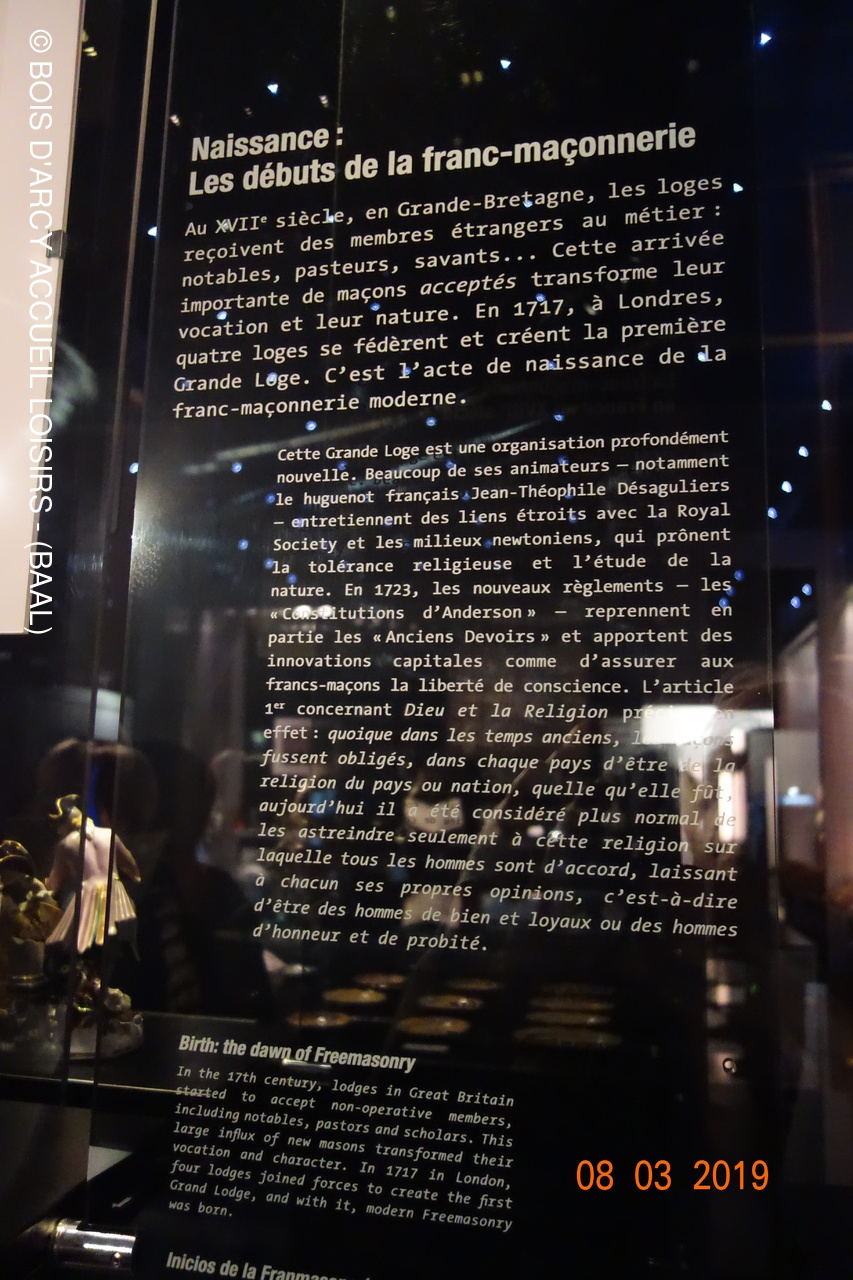 © BOIS D'ARCY ACCUEIL LOISIRS - (BAAL)
Naissance :
Les débuts de la franc-maçonnerie
Au XVIIe siècle, en Grande-Bretagne, les loges
reçoivent des membres étrangers au métier :
notables, pasteurs, savants... Cette arrivée
importante de maçons acceptés transforme leur
vocation et leur nature. En 1717, à Londres,
quatre loges se fédèrent et créent la première
Grande Loge. C'est l'acte de naissance de la
franc-maçonnerie moderne.
Cette Grande Loge est une organisation profondément
nouvelle. Beaucoup de ses animateurs — notamment
le huguenot français Jean-Théophile Désaguliers
— entretiennent des liens étroits avec la Royal
Society et les milieux newtoniens, qui prônent
la tolérance religieuse et l'étude de la
nature. En 1723, les nouveaux règlements — les
« Constitutions d'Anderson » — reprennent en
partie les « Anciens Devoirs » et apportent des
innovations capitales comme d'assurer aux
francs-maçons la liberté de conscience. L'article
1er concernant Dieu et la Religion précise en
effet : quoique dans les temps anciens, les maçons
fussent obligés, dans chaque pays d'être de la
religion du pays ou nation, quelle qu'elle fût,
aujourd'hui il a été considéré plus normal de
les astreindre seulement à cette religion sur
laquelle tous les hommes sont d'accord, laissant
à chacun ses propres opinions, c'est-à-dire
d'être des hommes de bien et loyaux ou des hommes
d'honneur et de probité.
Birth: the dawn of Freemasonry
In the 17th century, lodges in Great Britain
started to accept non-operative members,
including notables, pastors and scholars. This
large influx of new masons transformed their
vocation and character. In 1717 in London,
four lodges joined forces to create the first
Grand Lodge, and with it, modern Freemasonry
was born.
Inicios de la
08 03 2019